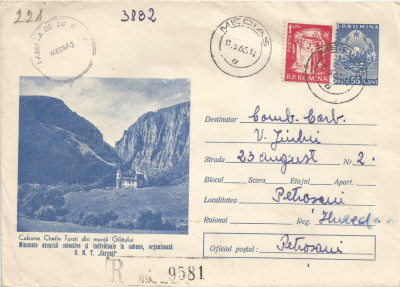 221
3882
FABRICA DE
MEDIAȘ
MEDIAȘ
R.P.ROMINA
R.P.ROMINA
55
Destinatar Comb. Carb.
V. Jiului
Strada 23 august Nr. 2.
Blocul Scara Etajul Apart.
Localitatea Petroșani
Raionul Reg. Huned
Oficiul poștal: Petroșani
Cabana Cheile Turzii din munții Gilăului
Minunate excursii colective și individuale la cabane, organizează
O. N. T. „Carpați"
R
9581